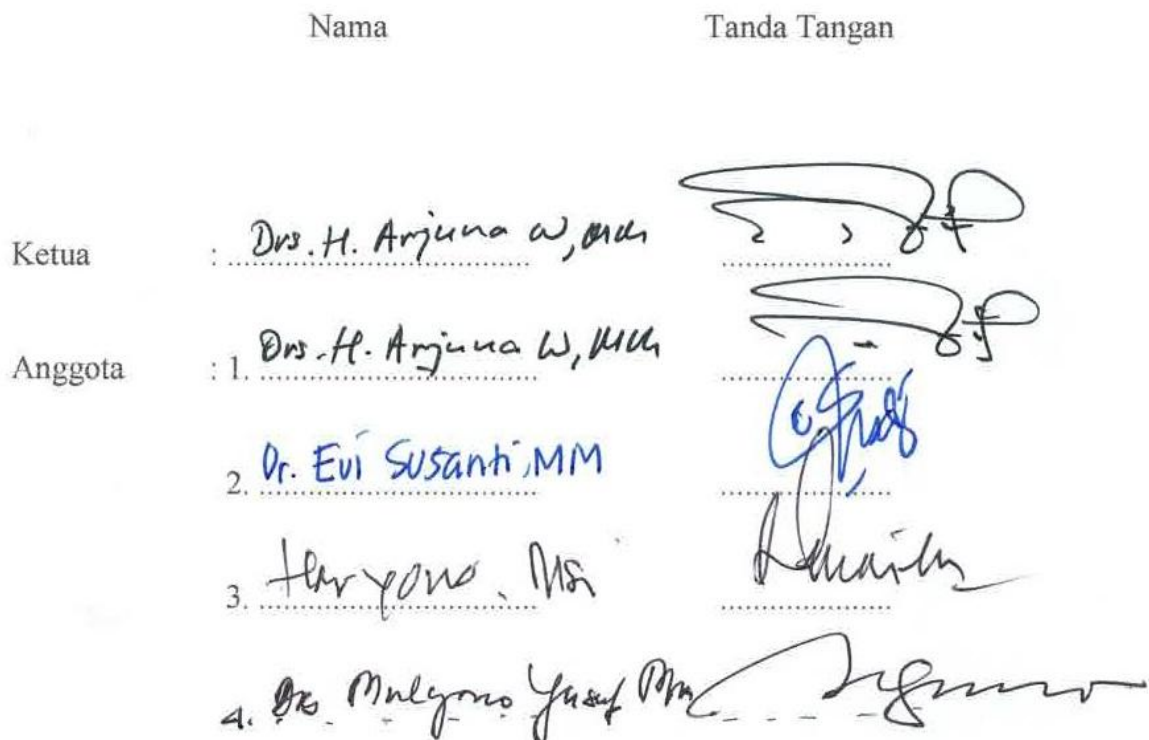 Nama Tanda Tangan
Ketua : Drs. H. Arjuna W, MM
Anggota : 1. Drs. H. Arjuna W, MM
2. Dr. Evi Susanti, MM
3. Haryono, MSi
4. Drs Mulyono Yusuf MM